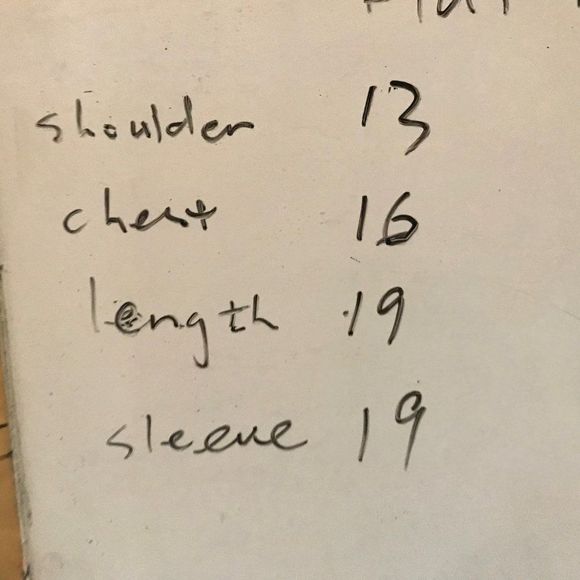 shoulder 13
chest 16
length 19
sleeve 19